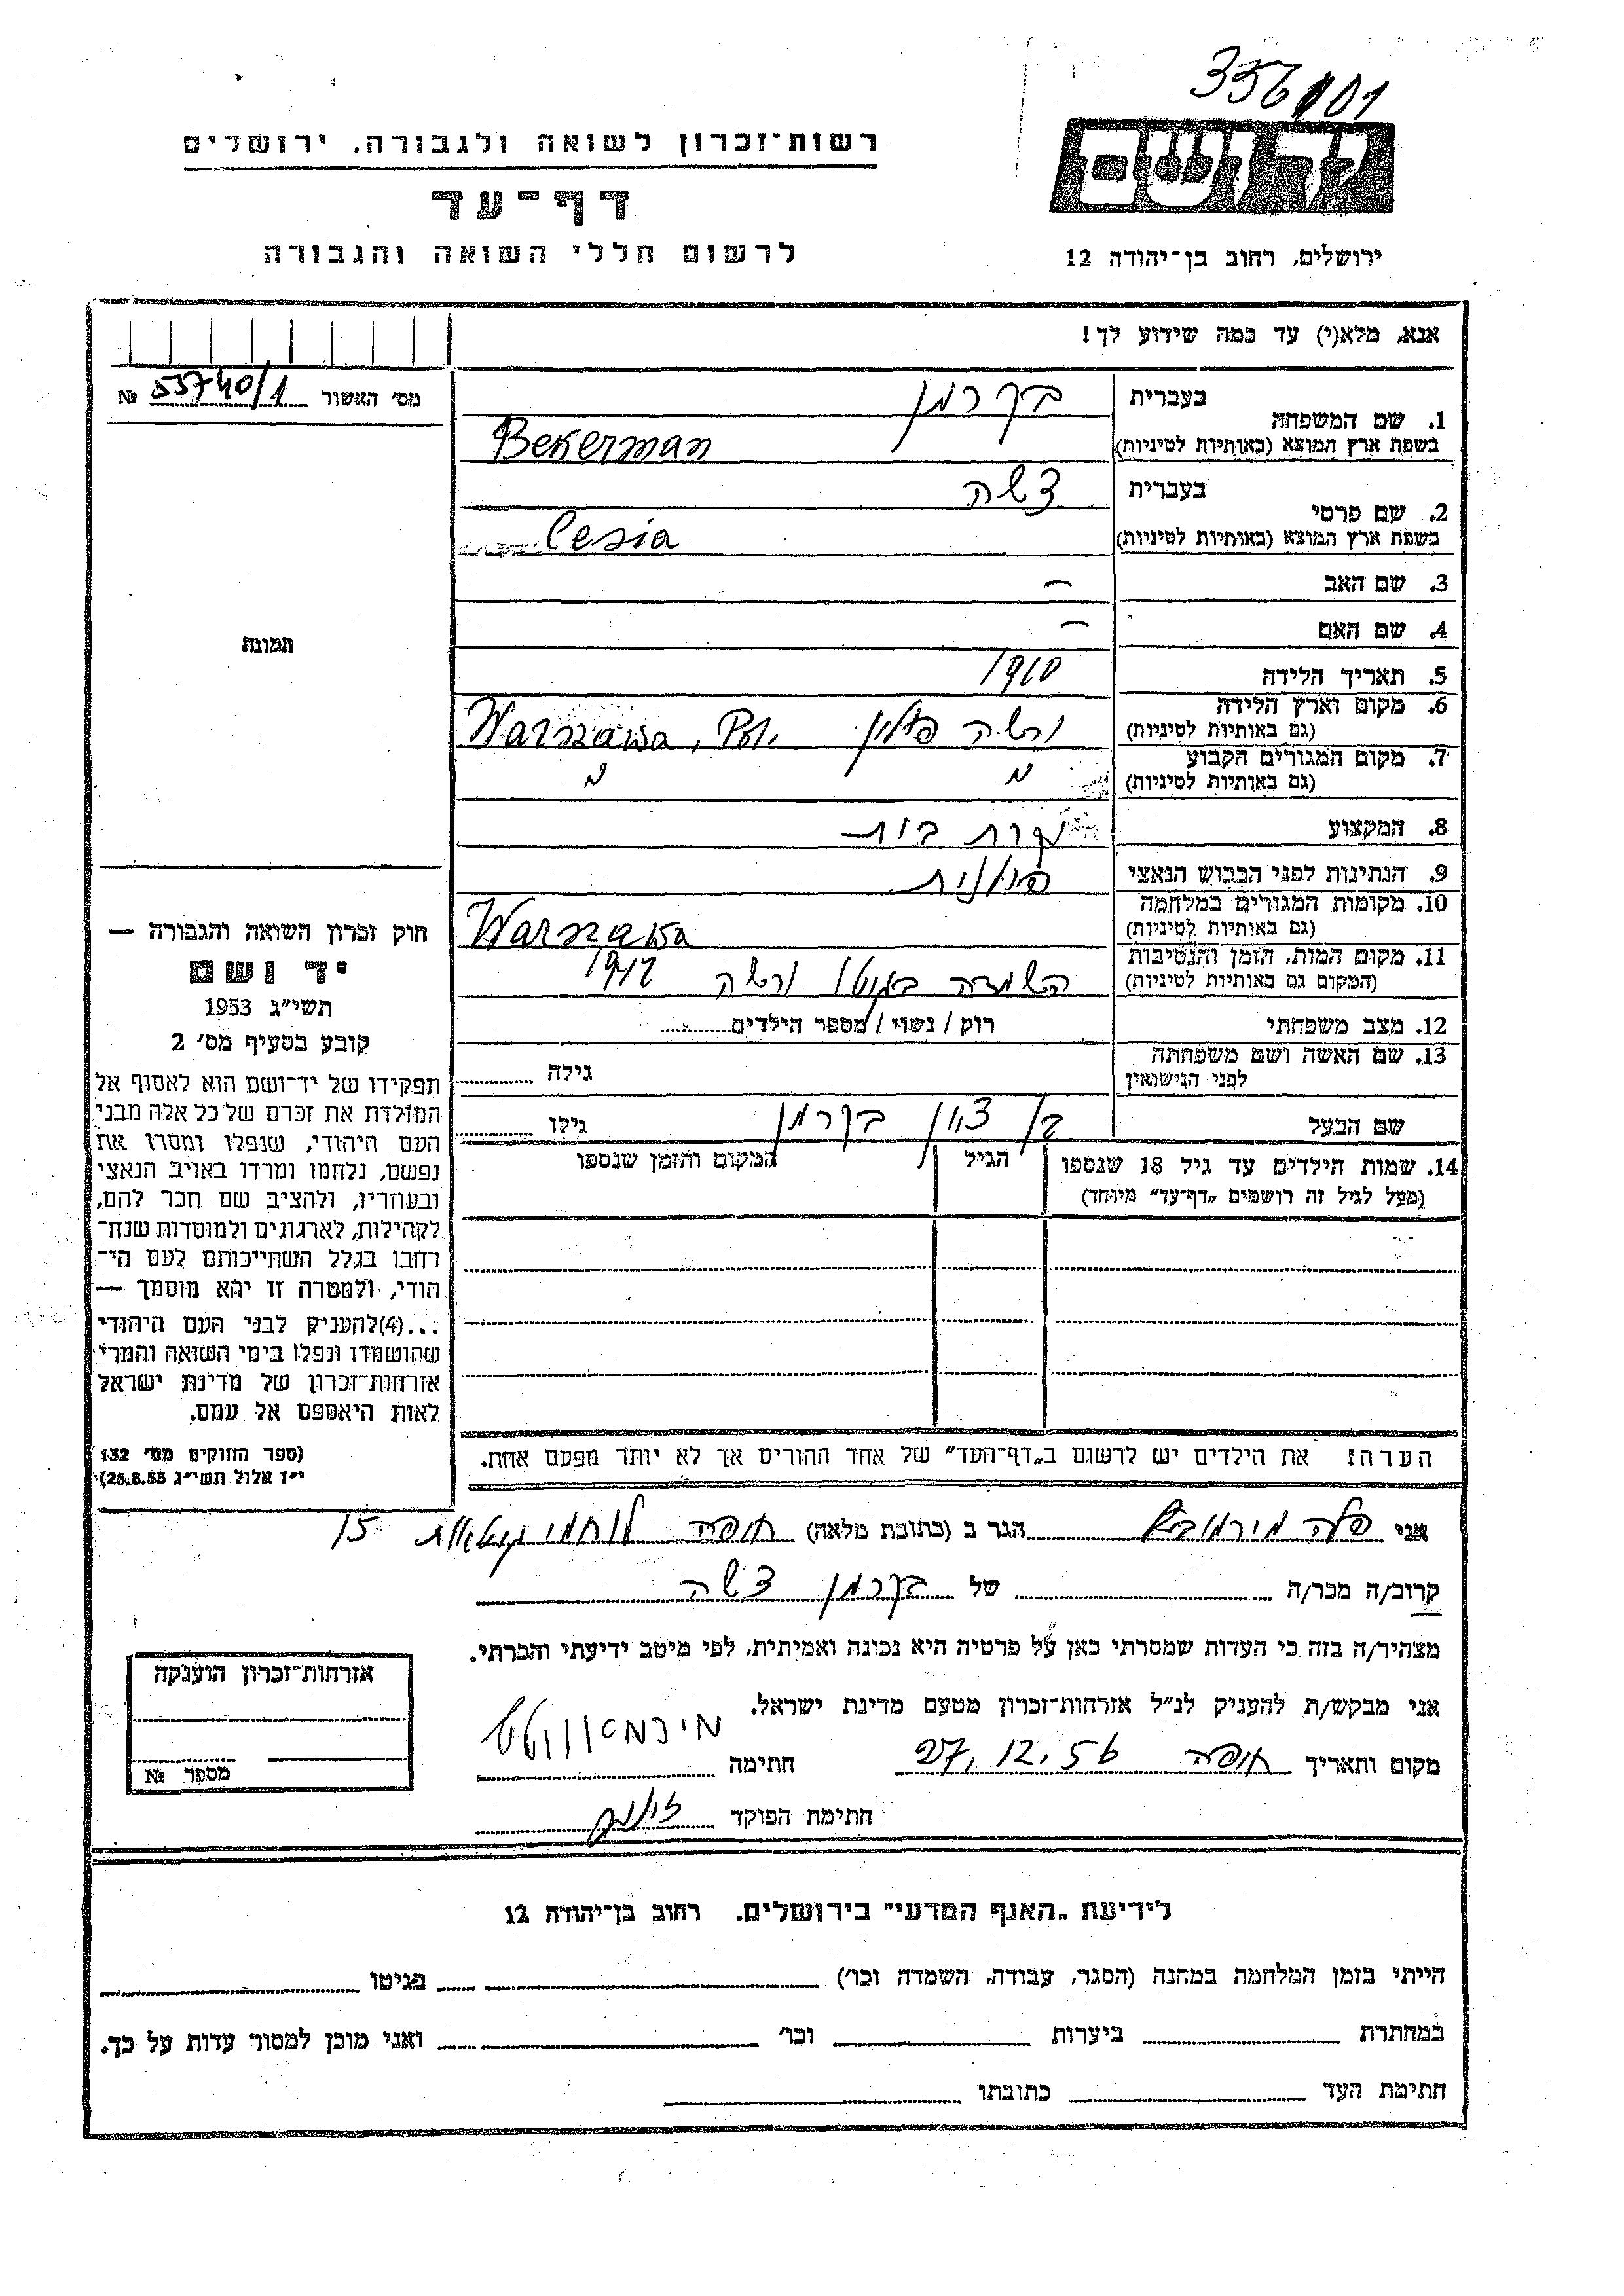 356101
רשות־זכרון לשואה ולגבורה, ירושלים
דף־עד
לרשום חללי השואה והגבורה
יד ושם
ירושלים, רחוב בן־יהודה 12
אנא, מלא(י) עד כמה שידוע לך!
מס׳ האשור 55740/1 №
תמונה
1. שם המשפחה
בעברית בקרמן
בשפת ארץ המוצא (באותיות לטיניות) Bekerman
2. שם פרטי
בעברית צשה
בשפת ארץ המוצא (באותיות לטיניות) Cesia
3. שם האב —
4. שם האם —
5. תאריך הלידה 1910
6. מקום וארץ הלידה ורשה פולין Warszawa, Pol.
(גם באותיות לטיניות)
7. מקום המגורים הקבוע
(גם באותיות לטיניות)
8. המקצוע עקרת בית
9. הנתינות לפני הכבוש הנאצי פולנית
10. מקומות המגורים במלחמה Warszawa
(גם באותיות לטיניות)
11. מקום המות, הזמן והנסיבות הושמדה בגיטו ורשה 1942
(המקום גם באותיות לטיניות)
12. מצב משפחתי רוק / נשוי / מספר הילדים
13. שם האשה ושם משפחתה
לפני הנישואין
גילה
שם הבעל בן ציון בקרמן גילו
14. שמות הילדים עד גיל 18 שנספו הגיל המקום והזמן שנספו
(מעל לגיל זה רושמים „דף־עד״ מיוחד)
הערה! את הילדים יש לרשום ב„דף־העד״ של אחד ההורים אך לא יותר מפעם אחת.
חוק זכרון השואה והגבורה —
יד ושם
תשי״ג 1953
קובע בסעיף מס׳ 2
תפקידו של יד־ושם הוא לאסוף אל
המולדת את זכרם של כל אלה מבני
העם היהודי, שנפלו ומסרו את
נפשם, נלחמו ומרדו באויב הנאצי
ובעוזריו, ולהציב שם וזכר להם,
לקהילות, לארגונים ולמוסדות שנח־
רבו בגלל השתייכותם לעם הי־
הודי, ולמטרה זו יהא מוסמך —
...(4) להעניק לבני העם היהודי
שהושמדו ונפלו בימי השואה והמרי
אזרחות־זכרון של מדינת ישראל
לאות היאספם אל עמם.
(ספר החוקים מס׳ 132
י״ז אלול תשי״ג 28.8.53)
אני פלה הגר ב (כתובת מלאה) חיפה לוחמי גיטאות 15
קרוב/ה מכר/ה של בקרמן צשה
מצהיר/ה בזה כי העדות שמסרתי כאן על פרטיה היא נכונה ואמיתית, לפי מיטב ידיעתי והכרתי.
אני מבקש/ת להעניק לנ״ל אזרחות־זכרון מטעם מדינת ישראל.
מקום ותאריך חיפה 27.12.56 חתימה
חתימת הפוקד
אזרחות־זכרון הוענקה
מספר №
לידיעת „האגף המדעי״ בירושלים, רחוב בן־יהודה 12
הייתי בזמן המלחמה במחנה (הסגר, עבודה, השמדה וכו׳) בגיטו
במחתרת ביערות וכו׳ ואני מוכן למסור עדות על כך.
חתימת העד כתובתו